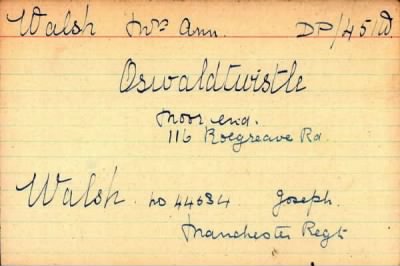 Walsh Mrs Ann. DP/45/W
Oswaldtwistle
Moor end.
116 Roegreave Rd
Walsh. no 44634 Joseph.
Manchester Regt